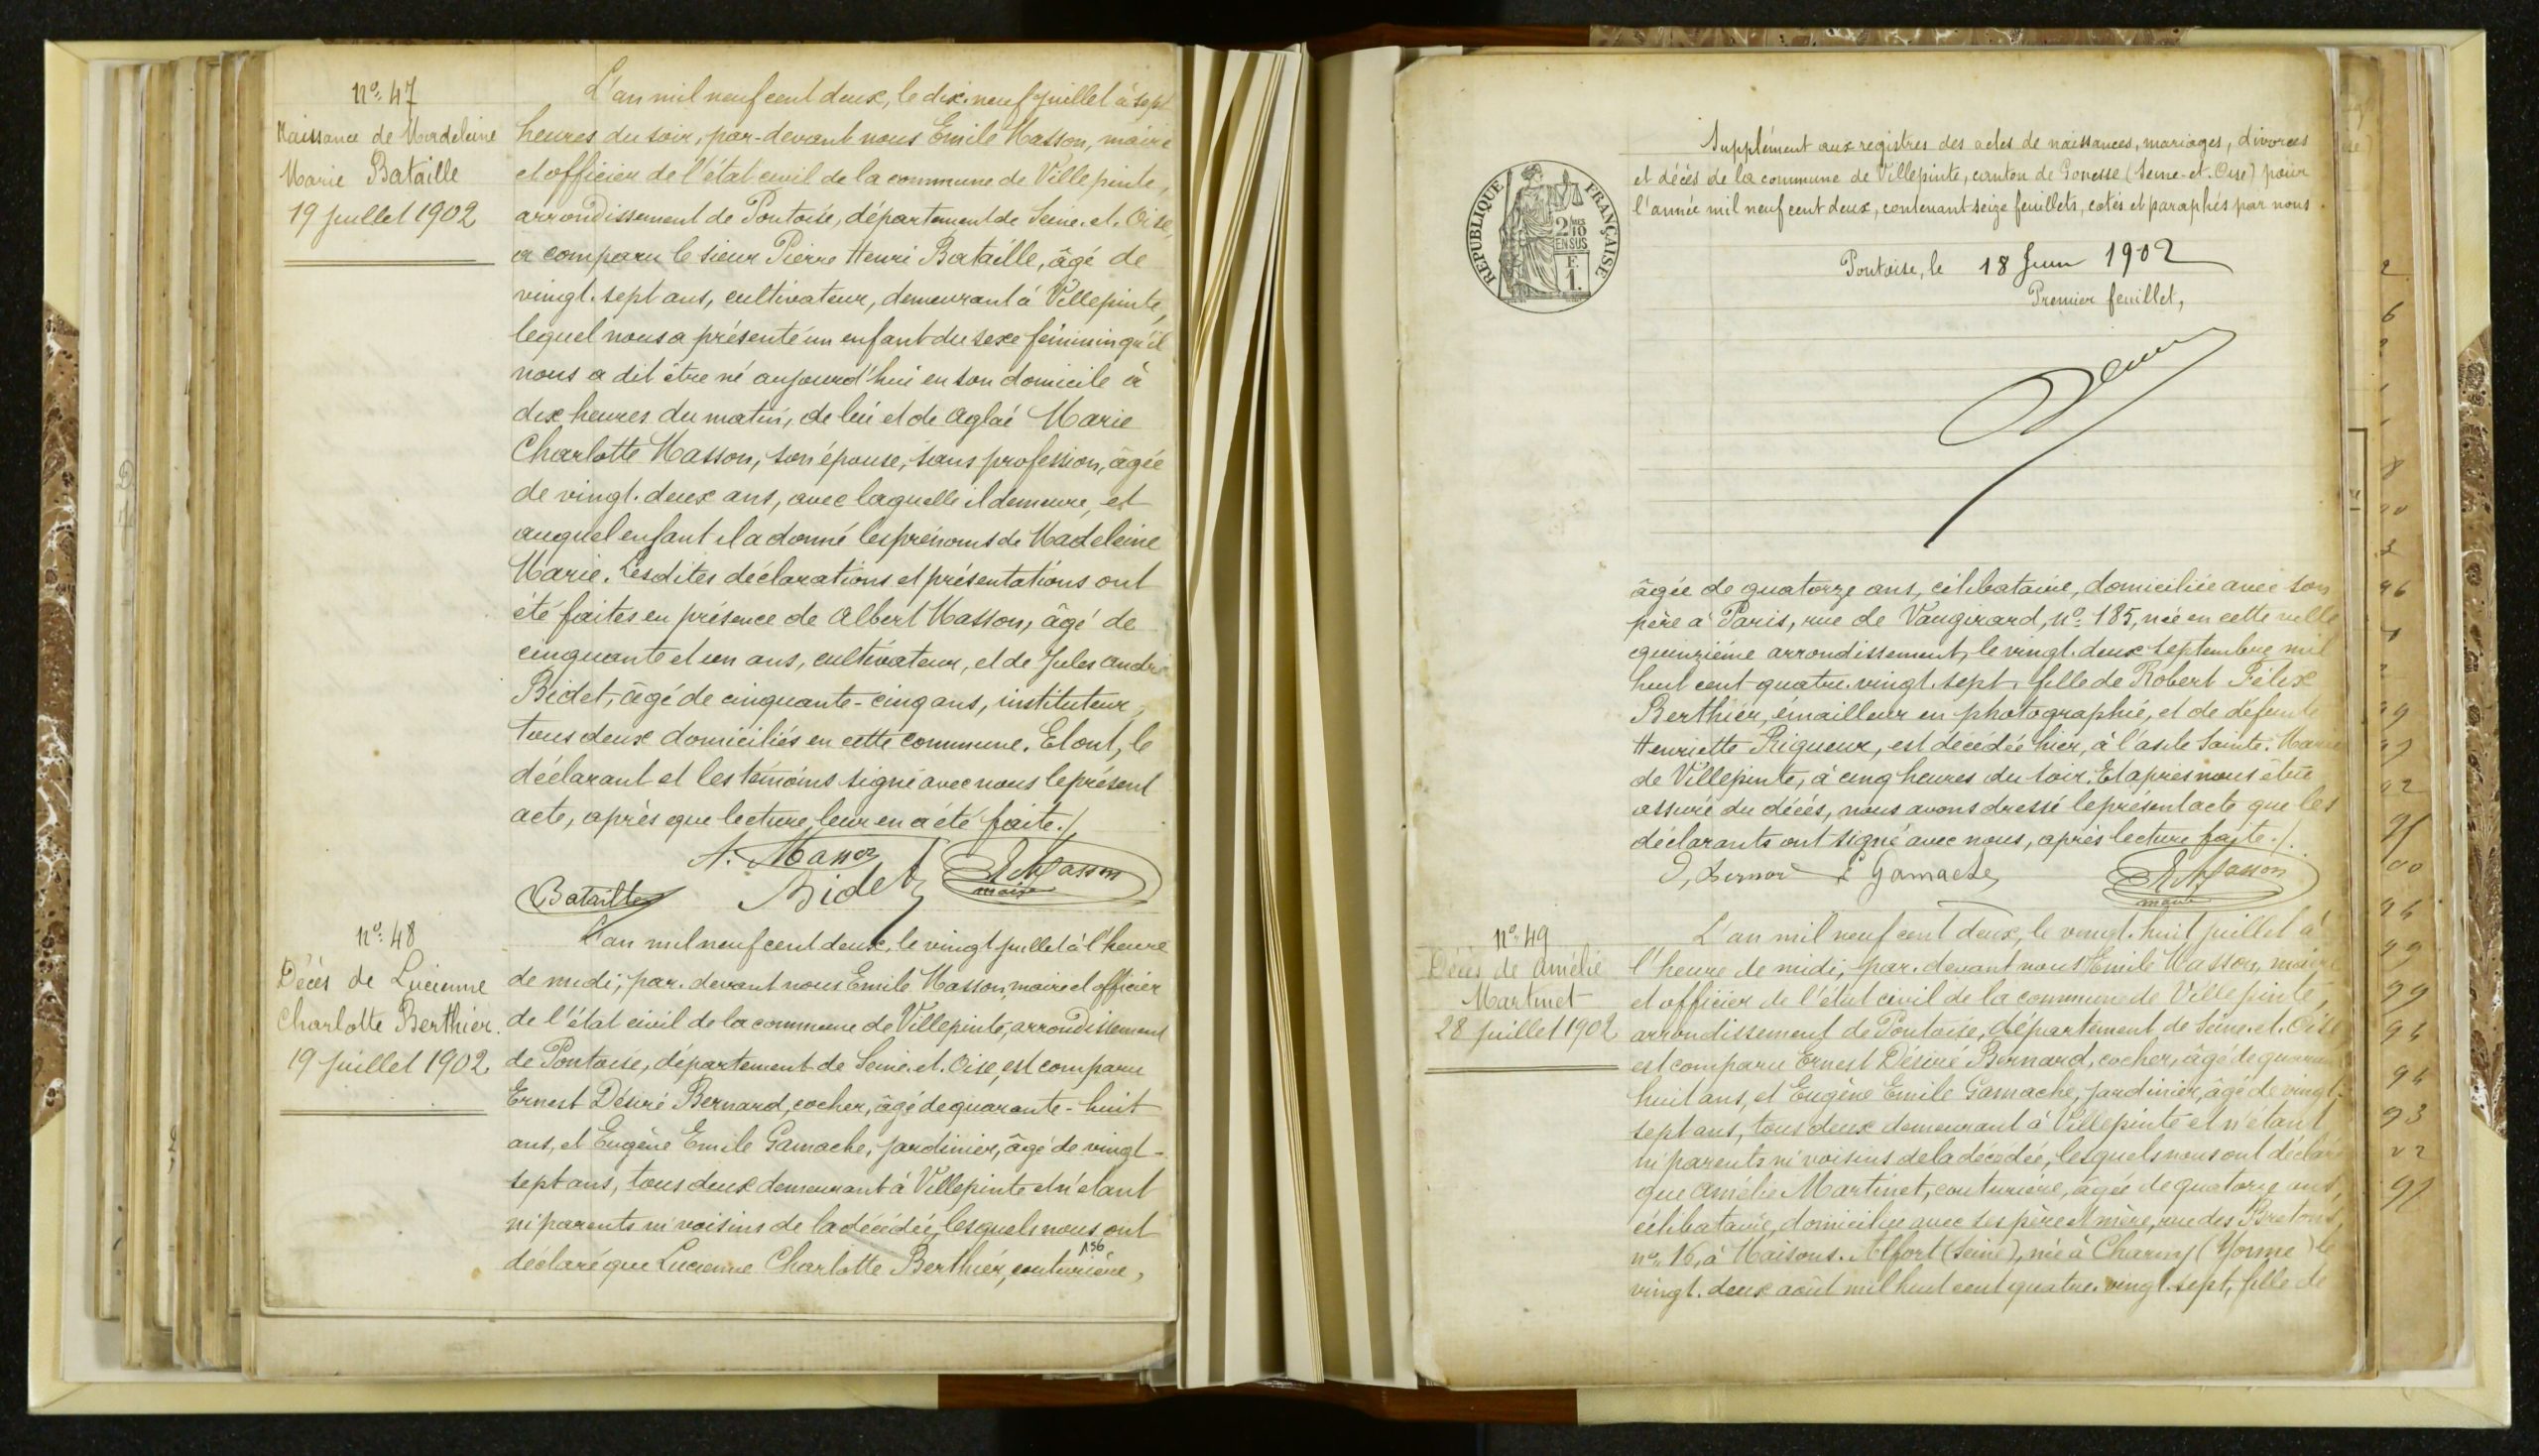 nº 47
Naissance de Madeleine
Marie Bataille
19 juillet 1902
L'an mil neuf cent deux, le dix-neuf juillet à sept
heures du soir, par-devant nous Emile Masson, maire
et officier de l'état civil de la commune de Villepinte,
arrondissement de Pontoise, département de Seine-et-Oise,
a comparu le sieur Pierre Henri Bataille, âgé de
vingt-sept ans, cultivateur, demeurant à Villepinte,
lequel nous a présenté un enfant du sexe féminin qu'il
nous a dit être né aujourd'hui en son domicile à
dix heures du matin, de lui et de Aglaé Marie
Charlotte Masson, son épouse, sans profession, âgée
de vingt-deux ans, avec laquelle il demeure, et
auquel enfant il a donné les prénoms de Madeleine
Marie. Lesdites déclarations et présentations ont
été faites en présence de Albert Masson, âgé de
cinquante et un ans, cultivateur, et de Jules André
Bidet, âgé de cinquante-cinq ans, instituteur,
tous deux domiciliés en cette commune. Et ont, le
déclarant et les témoins signé avec nous le présent
acte, après que lecture leur en a été faite./.
A. Masson
Bataille Bidet E Masson
maire
nº 48
Décès de Lucienne
Charlotte Berthier.
19 juillet 1902.
L'an mil neuf cent deux, le vingt juillet à l'heure
de midi; par-devant nous Emile Masson, maire et officier
de l'état civil de la commune de Villepinte, arrondissement
de Pontoise, département de Seine-et-Oise, est comparu
Ernest Désiré Bernard, cocher, âgé de quarante-huit
ans, et Eugène Emile Gamache, jardinier, âgé de vingt-
sept ans, tous deux demeurant à Villepinte et n'étant
ni parents ni voisins de la décédée, lesquels nous ont
déclaré que Lucienne Charlotte Berthier, couturière,
156
Supplément aux registres des actes de naissances, mariages, divorces
et décès de la commune de Villepinte, canton de Gonesse (Seine-et-Oise) pour
l'année mil neuf cent deux, contenant seize feuillets, cotés et paraphés par nous
Pontoise, le 18 Juin 1902
Premier feuillet,
RÉPUBLIQUE FRANÇAISE
2/10
EN SUS
F.
1.
âgée de quatorze ans, célibataire, domiciliée avec son
père à Paris, rue de Vaugirard, nº 185, née en cette ville
quinzième arrondissement, le vingt-deux septembre mil
huit cent quatre-vingt-sept, fille de Robert Félix
Berthier, émailleur en photographie, et de défunte
Henriette Rigueur, est décédée hier, à l'asile Sainte-Marie
de Villepinte, à cinq heures du soir. Et après nous être
assuré du décès, nous avons dressé le présent acte que les
déclarants ont signé avec nous, après lecture faite./.
D, Bernard E Gamache E Masson
maire
nº 49
Décès de Amélie
Martinet
28 juillet 1902
L'an mil neuf cent deux, le vingt-huit juillet à
l'heure de midi; par-devant nous Emile Masson, maire
et officier de l'état civil de la commune de Villepinte,
arrondissement de Pontoise, département de Seine-et-Oise
est comparu Ernest Désiré Bernard, cocher, âgé de quarante
huit ans, et Eugène Emile Gamache, jardinier, âgé de vingt-
sept ans, tous deux demeurant à Villepinte et n'étant
ni parents ni voisins de la décédée, lesquels nous ont déclaré
que Amélie Martinet, couturière, âgée de quatorze ans,
célibataire, domiciliée avec ses père et mère, rue des Bretons,
nº 16, à Maisons-Alfort (Seine), née à Charny (Yonne) le
vingt-deux août mil huit cent quatre-vingt-sept, fille de